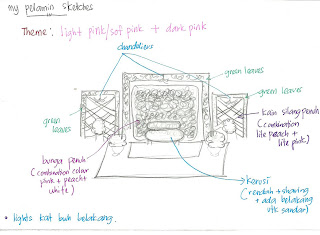 my pelamin sketches
Theme: light pink/sof pink + dark pink
chandeliers
green leaves
green leaves
green leaves
kain silang penuh
(combination
lite peach +
lite pink)
bunga penuh
(combination colour
pink + peach +
white)
kerusi
(rendah + sharing
+ ada belakang
utk sandar)
• lights kat buh belakang.